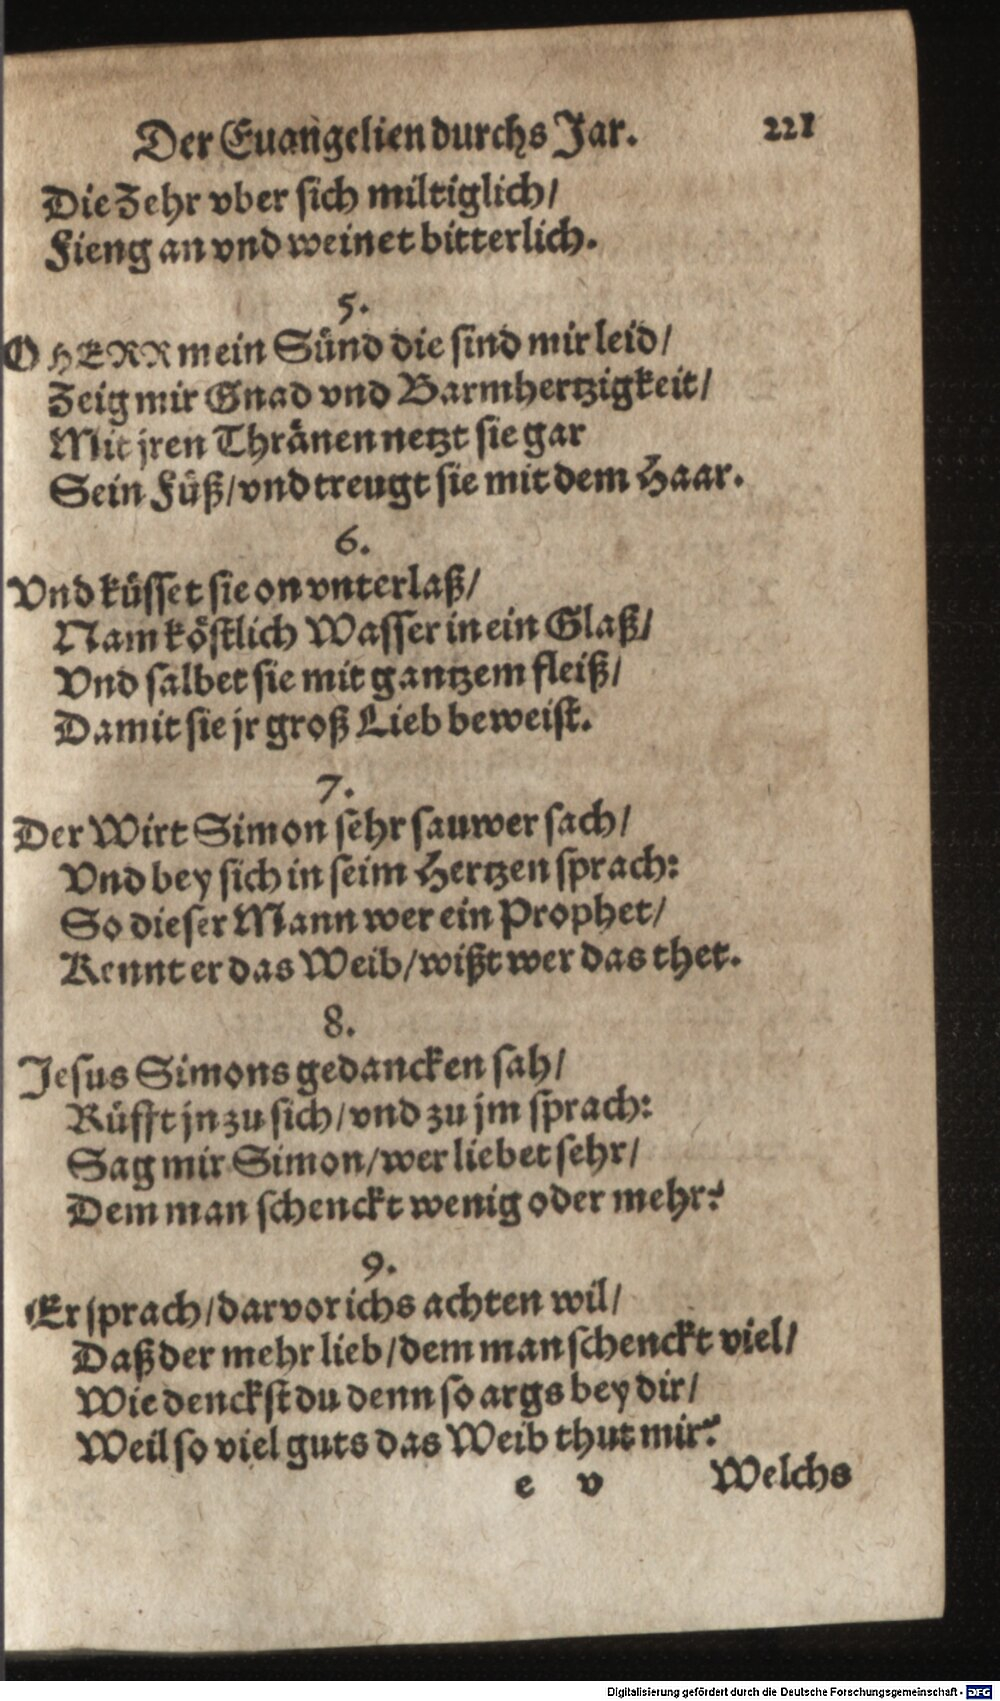 Der Euangelien durchs Jar. 221
Die Zehr vber sich miltiglich/
Fieng an vnd weinet bitterlich.
5.
O HERR mein Sünd die sind mir leid/
Zeig mir Gnad vnd Barmhertzigkeit/
Mit jren Thränen netzt sie gar
Sein Füß/vnd treugt sie mit dem Haar.
6.
Vnd küsset sie on vnterlaß/
Nam köstlich Wasser in ein Glaß/
Vnd salbet sie mit gantzem fleiß/
Damit sie jr groß Lieb beweist.
7.
Der Wirt Simon sehr sauwer sach/
Vnd bey sich in seim Hertzen sprach:
So dieser Mann wer ein Prophet/
Kennt er das Weib/wißt wer das thet.
8.
Jesus Simons gedancken sah/
Rüfft jn zu sich/vnd zu jm sprach:
Sag mir Simon/wer liebet sehr/
Dem man schenckt wenig oder mehr?
9.
Er sprach/darvor ichs achten wil/
Daß der mehr lieb/dem man schenckt viel/
Wie denckst du denn so args bey dir/
Weil so viel guts das Weib thut mir?
e v Welchs
Digitalisierung gefördert durch die Deutsche Forschungsgemeinschaft - DFG